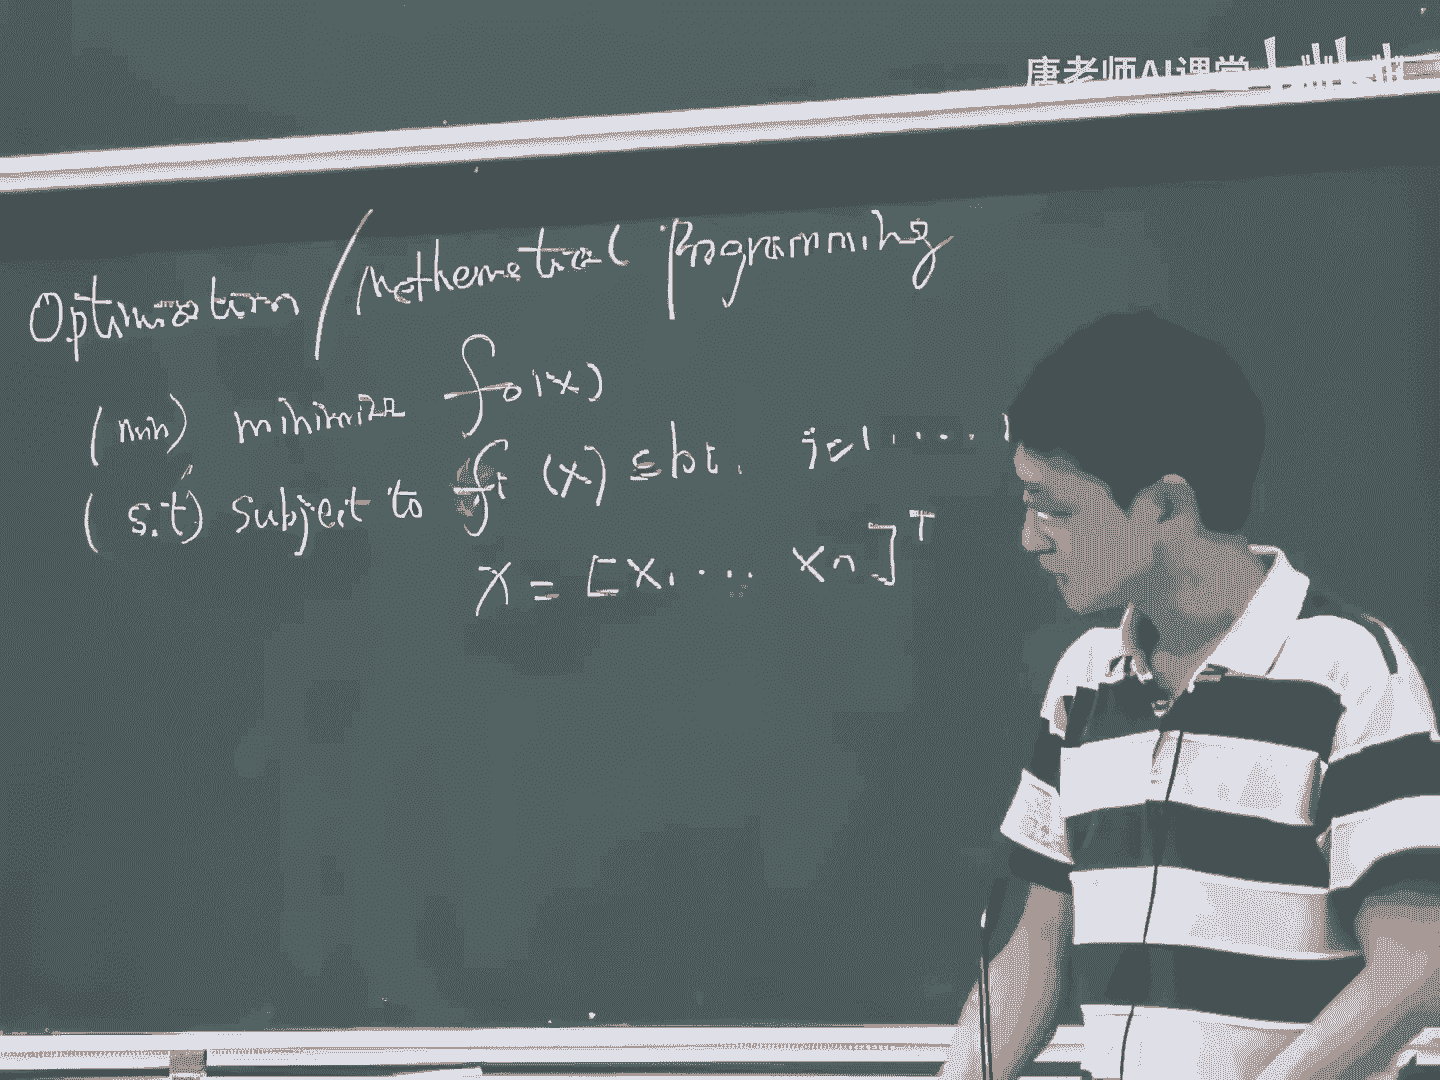 唐老师AI课堂
Optimization / Mathematical Programming
(min) minimize f₀(x)
(s.t) subject to fi (x) ≤ bi. i=1 ....
x = [x₁ ... xn]ᵀ